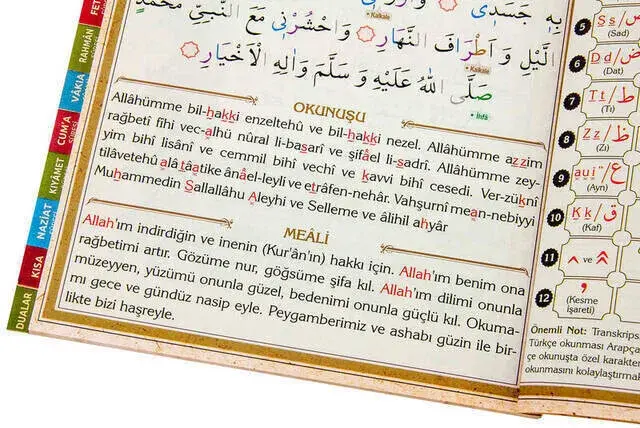 بِهِ جَسَدِى
Kalkale
الَّيْلِ وَ اَطْرَافَ النَّهَارِ وَاحْشُرْنٖى مَعَ النَّبِيِّ مُحَمَّدٍ
Kalkale
صَلَّى اللهُ عَلَيْهِ وَ سَلَّمَ وَاٰلِهِ الْاَخْيَارِ
İhfâ
OKUNUŞU
Allâhümme bil-hakkı enzeltehû ve bil-hakkı nezel. Allâhümme azzim
rağbetî fîhi vec-alhü nûral li-basarî ve şifâel li-sadrî. Allâhümme zey-
yim bihî lisânî ve cemmil bihî vechî ve kavvi bihî cesedî. Ver-züknî
tilâvetehû alâ tâatike ânâel-leyli ve etrâfen-nehâr. Vahşurnî mean-nebiyyi
Muhammedin Sallallâhu Aleyhi ve Selleme ve âlihil ahyâr
MEÂLİ
Allah'ım indirdiğin ve inenin (Kur'ân'ın) hakkı için. Allah'ım benim ona
rağbetimi artır. Gözüme nur, göğsüme şifa kıl. Allah'ım dilimi onunla
müzeyyen, yüzümü onunla güzel, bedenimi onunla güçlü kıl. Okuma-
mı gece ve gündüz nasip eyle. Peygamberimiz ve ashabı güzin ile bir-
likte bizi haşreyle.
RAHMÂN
VÂKIA
CUM'A
KIYÂMET
NAZİAT
KISA
DUALAR
5 Ss/ص
(Sad)
6 Dd/ض
(Dat)
7 Tt/ط
(Tı)
8 Zz/ظ
(Zı)
9 auiَ/ع
(Ayn)
10 Kk/ق
(Kaf)
11 ^ ve ^
12
(Kesme
işareti)
Önemli Not: Transkrips
Türkçe okunması Arapça
çe okunuşta özel karakte
okunmasını kolaylaştırmak